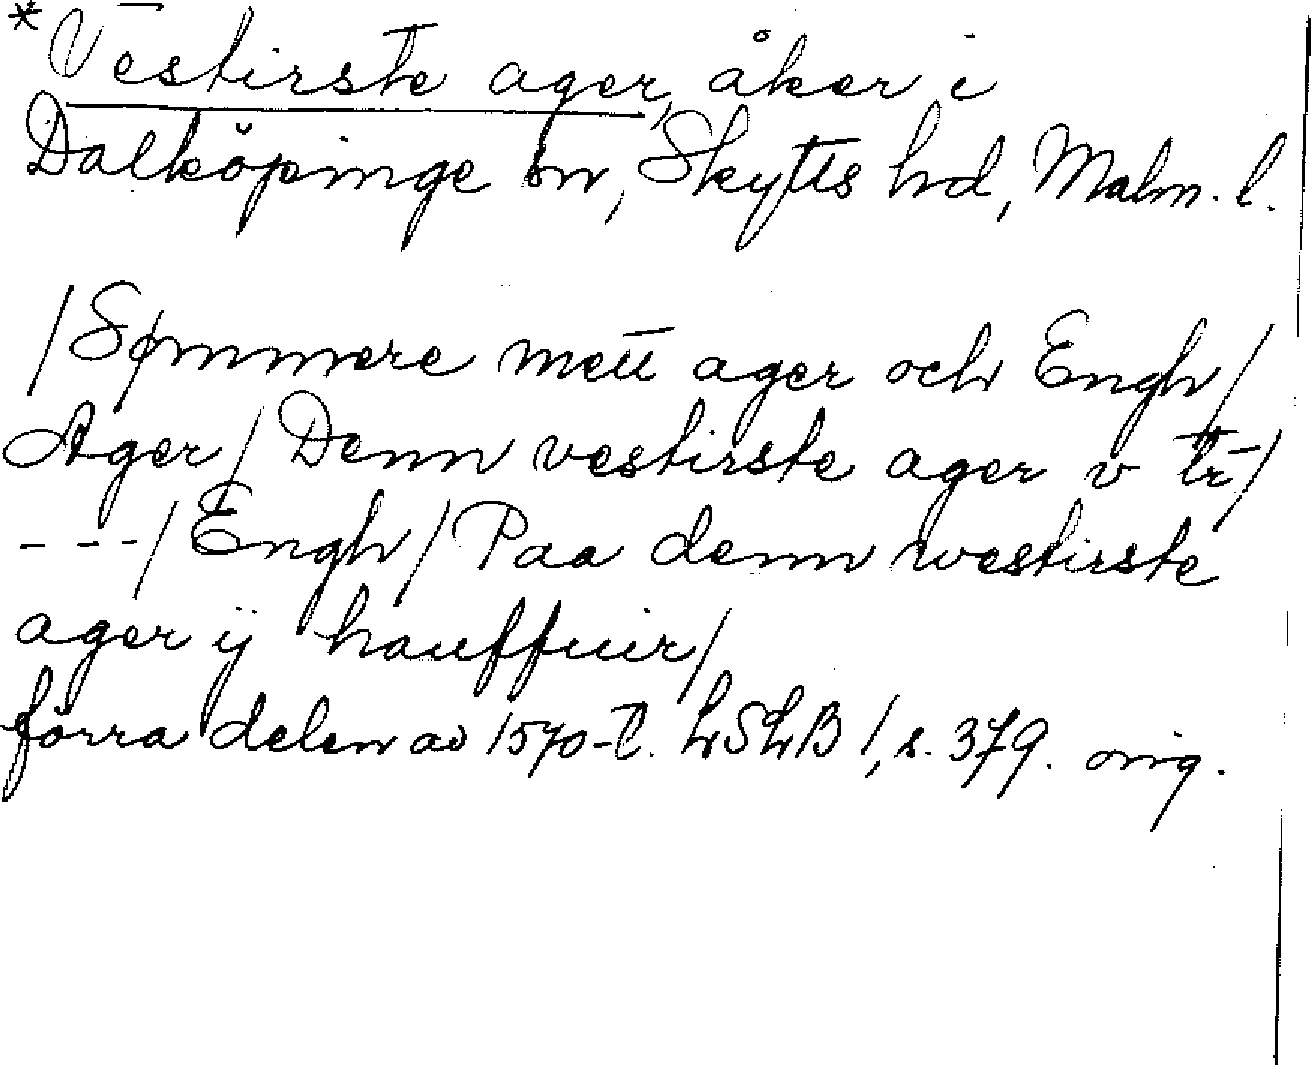 *Vestirste ager, åker i
Dalköpinge sn, Skytts hd, Malm. l.
/Sømmere mett ager och Engh/
Ager/ Denn vestirste ager v tr/
---/Engh/Paa denn westirste
ager ij hauffuir/
förra delen av 1570-t. LSLB 1, s. 379. orig.